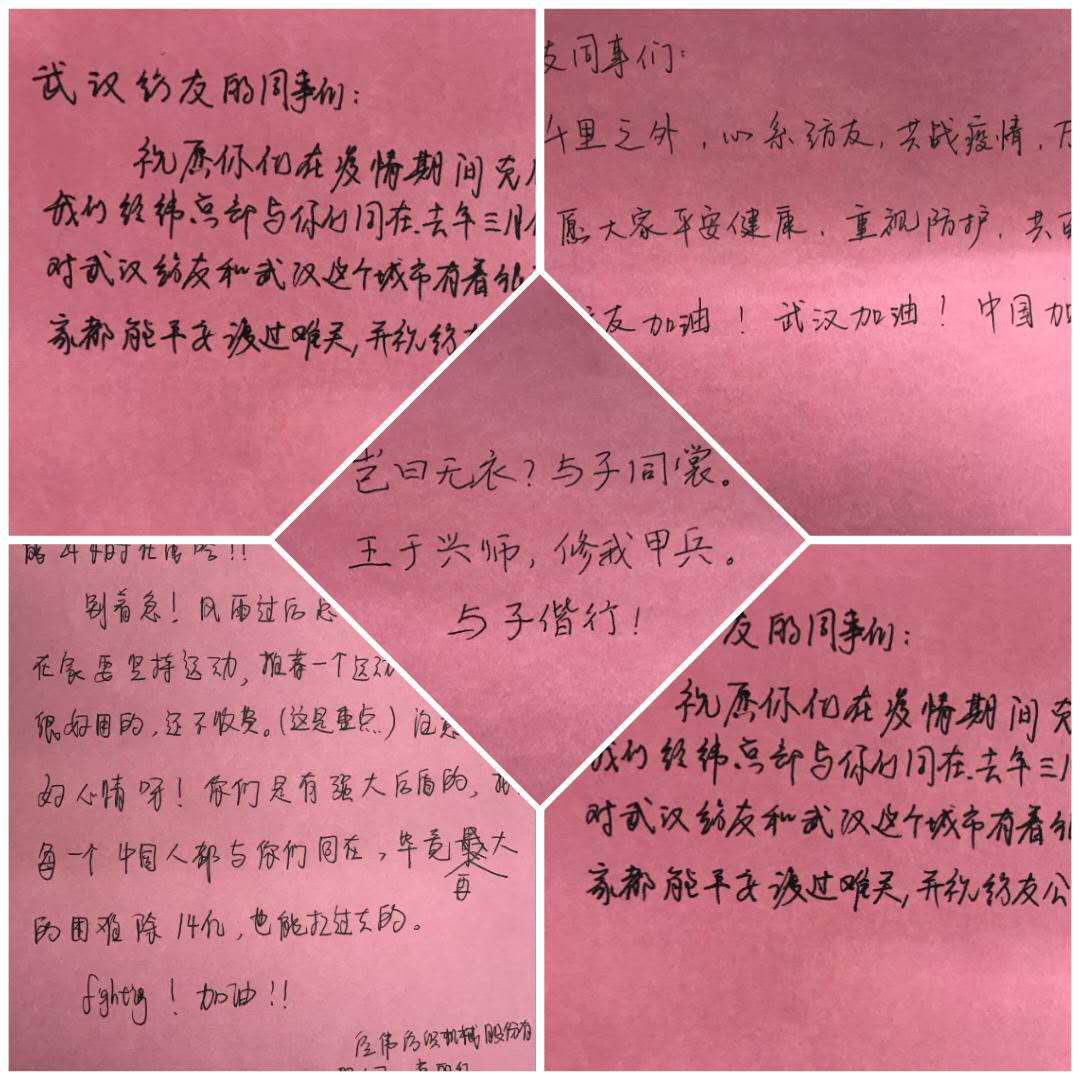 武汉纺友的同事们：
祝愿你们在疫情期间克
我们经纬点部与你们同在.去年三月
对武汉纺友和武汉这个城市有着
家都能平安渡过难关,并祝纺
友同事们：
千里之外，心系纺友，共战疫情，
愿大家平安健康、重视防护、共
友加油！武汉加油！中国加
岂曰无衣？与子同裳。
王于兴师，修我甲兵。
与子偕行！
别着急！风雨过后总
在家要坚持运动，推荐一个运动
很好用的，还不收费。(这是重点)
好心情呀！你们是有强大后盾的，
每一个中国人都与你们同在，毕竟再大
的困难除14亿，也能扛过去的。
fighting！加油!!
股份有
友的同事们：
祝愿你们在疫情期间克
我们经纬点部与你们同在.去年三月
对武汉纺友和武汉这个城市有着
家都能平安渡过难关,并祝纺友公